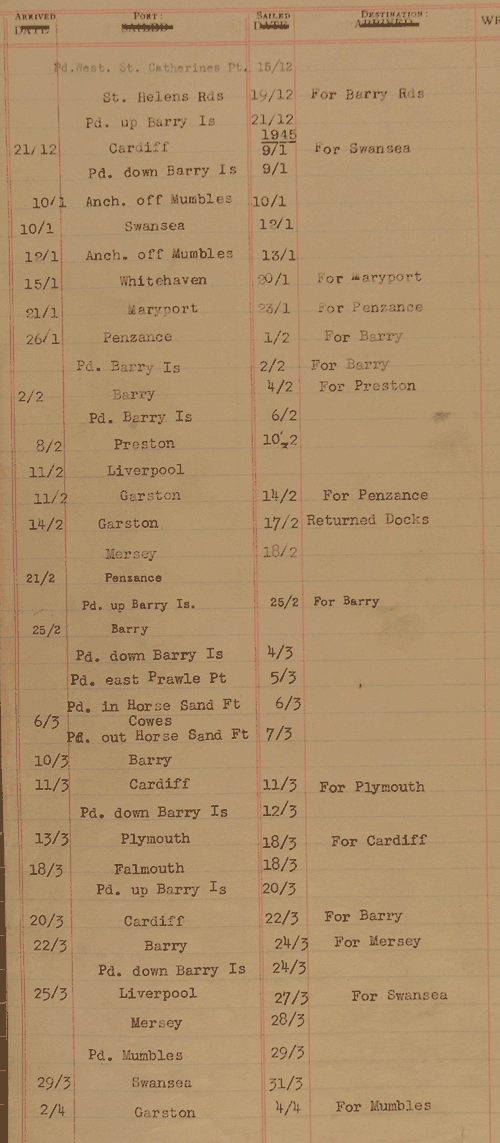 ARRIVED PORT: SAILED DESTINATION: WE
DATE SAILED DATE ARRIVED
Pd.West. St. Catherines Pt. 15/12
St. Helens Rds 19/12 For Barry Rds
Pd. up Barry Is 21/12
1945
21/12 Cardiff 9/1 For Swansea
Pd. down Barry Is 9/1
10/1 Anch. off Mumbles 10/1
10/1 Swansea 12/1
12/1 Anch. off Mumbles 13/1
15/1 Whitehaven 20/1 For Maryport
21/1 Maryport 23/1 For Penzance
26/1 Penzance 1/2 For Barry
Pd. Barry Is 2/2 For Barry
2/2 Barry 4/2 For Preston
Pd. Barry Is 6/2
8/2 Preston 10/2
11/2 Liverpool
11/2 Garston 14/2 For Penzance
14/2 Garston 17/2 Returned Docks
Mersey 18/2
21/2 Penzance
Pd. up Barry Is. 25/2 For Barry
25/2 Barry
Pd. down Barry Is 4/3
Pd. east Prawle Pt 5/3
Pd. in Horse Sand Ft 6/3
6/3 Cowes
Pd. out Horse Sand Ft 7/3
10/3 Barry
11/3 Cardiff 11/3 For Plymouth
Pd. down Barry Is 12/3
13/3 Plymouth 18/3 For Cardiff
18/3 Falmouth 18/3
Pd. up Barry Is 20/3
20/3 Cardiff 22/3 For Barry
22/3 Barry 24/3 For Mersey
Pd. down Barry Is 24/3
25/3 Liverpool 27/3 For Swansea
Mersey 28/3
Pd. Mumbles 29/3
29/3 Swansea 31/3
2/4 Garston 4/4 For Mumbles